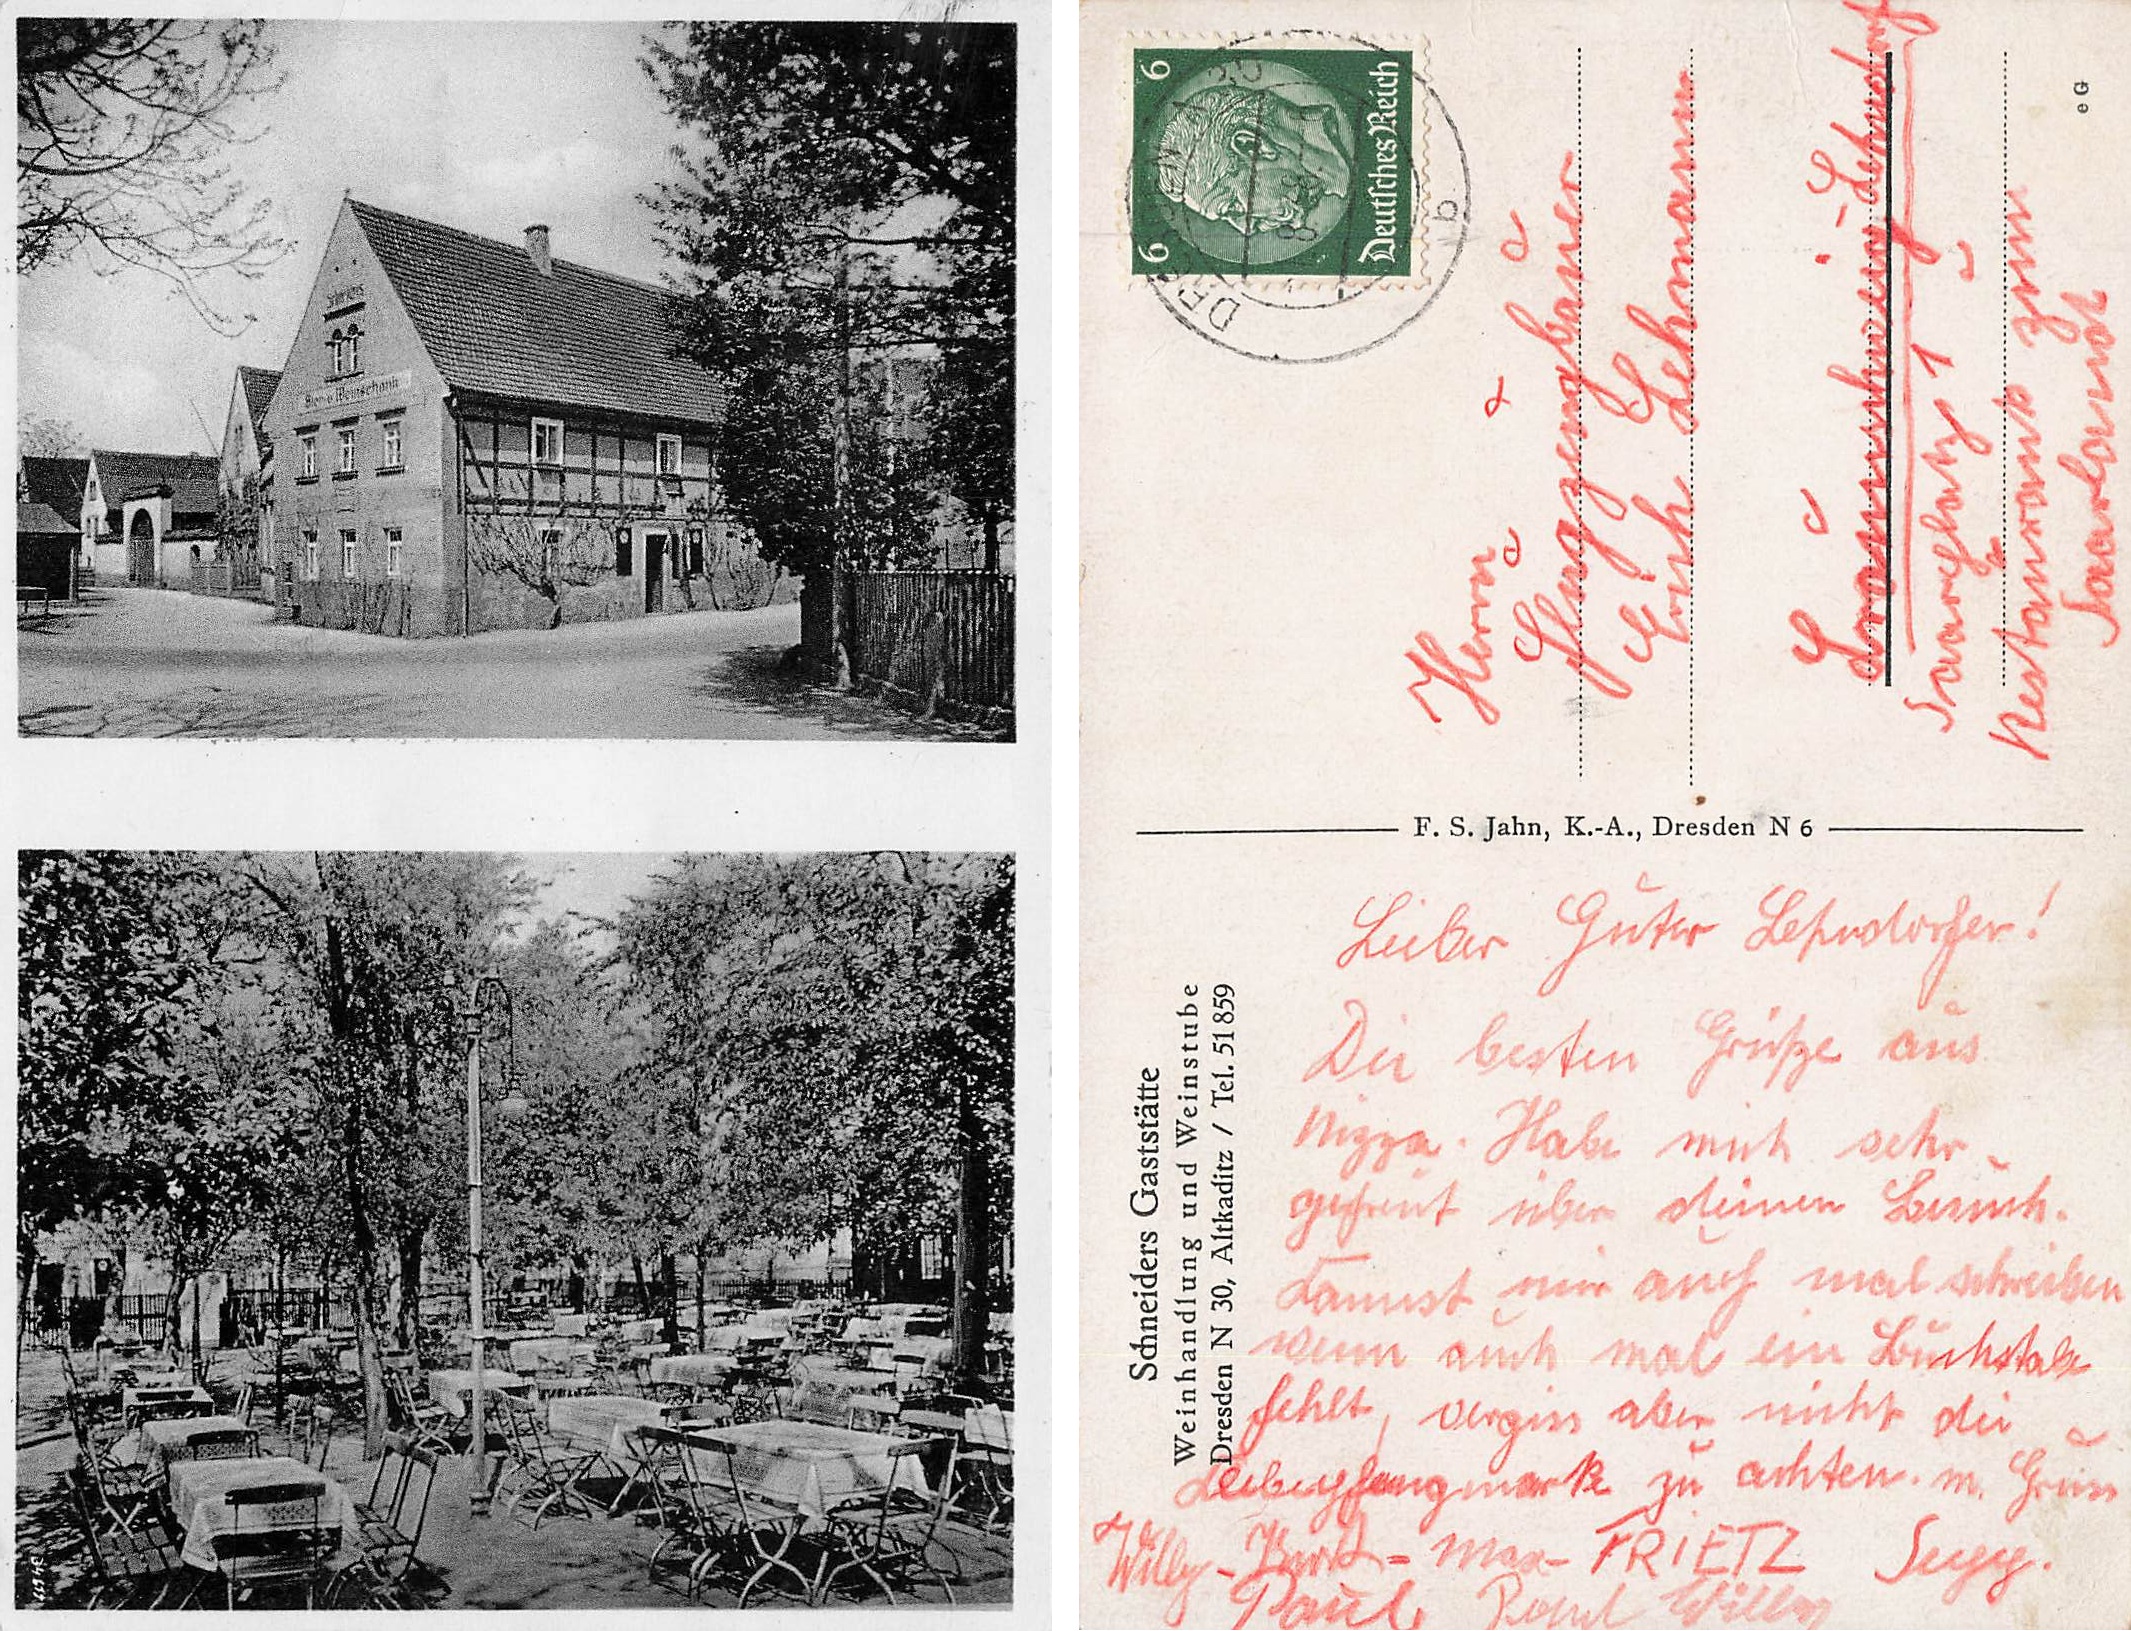 Bier- u. Weinschank
6 6
Deutsches Reich
DRESDEN
b
Herrn
Erich Lehmann
Braunschweig-Lehndorf
Saarplatz 1
Restaurant zum
Saarlandt
e G
F. S. Jahn, K.-A., Dresden N 6
Schneiders Gaststätte
Weinhandlung und Weinstube
Dresden N 30, Altkaditz / Tel. 51 859
Lieber Guter Lehndorfer!
Die besten Grüße aus
Nizza. Habe mich sehr
gefreut über deinen Besuch.
Kannst mir auch mal schreiben
wenn auch mal ein Buchstabe
fehlt, vergiss aber nicht die
zu achten. m. Gruss
Willy - Kurt - Max - FRIETZ
Paul Paul Willy